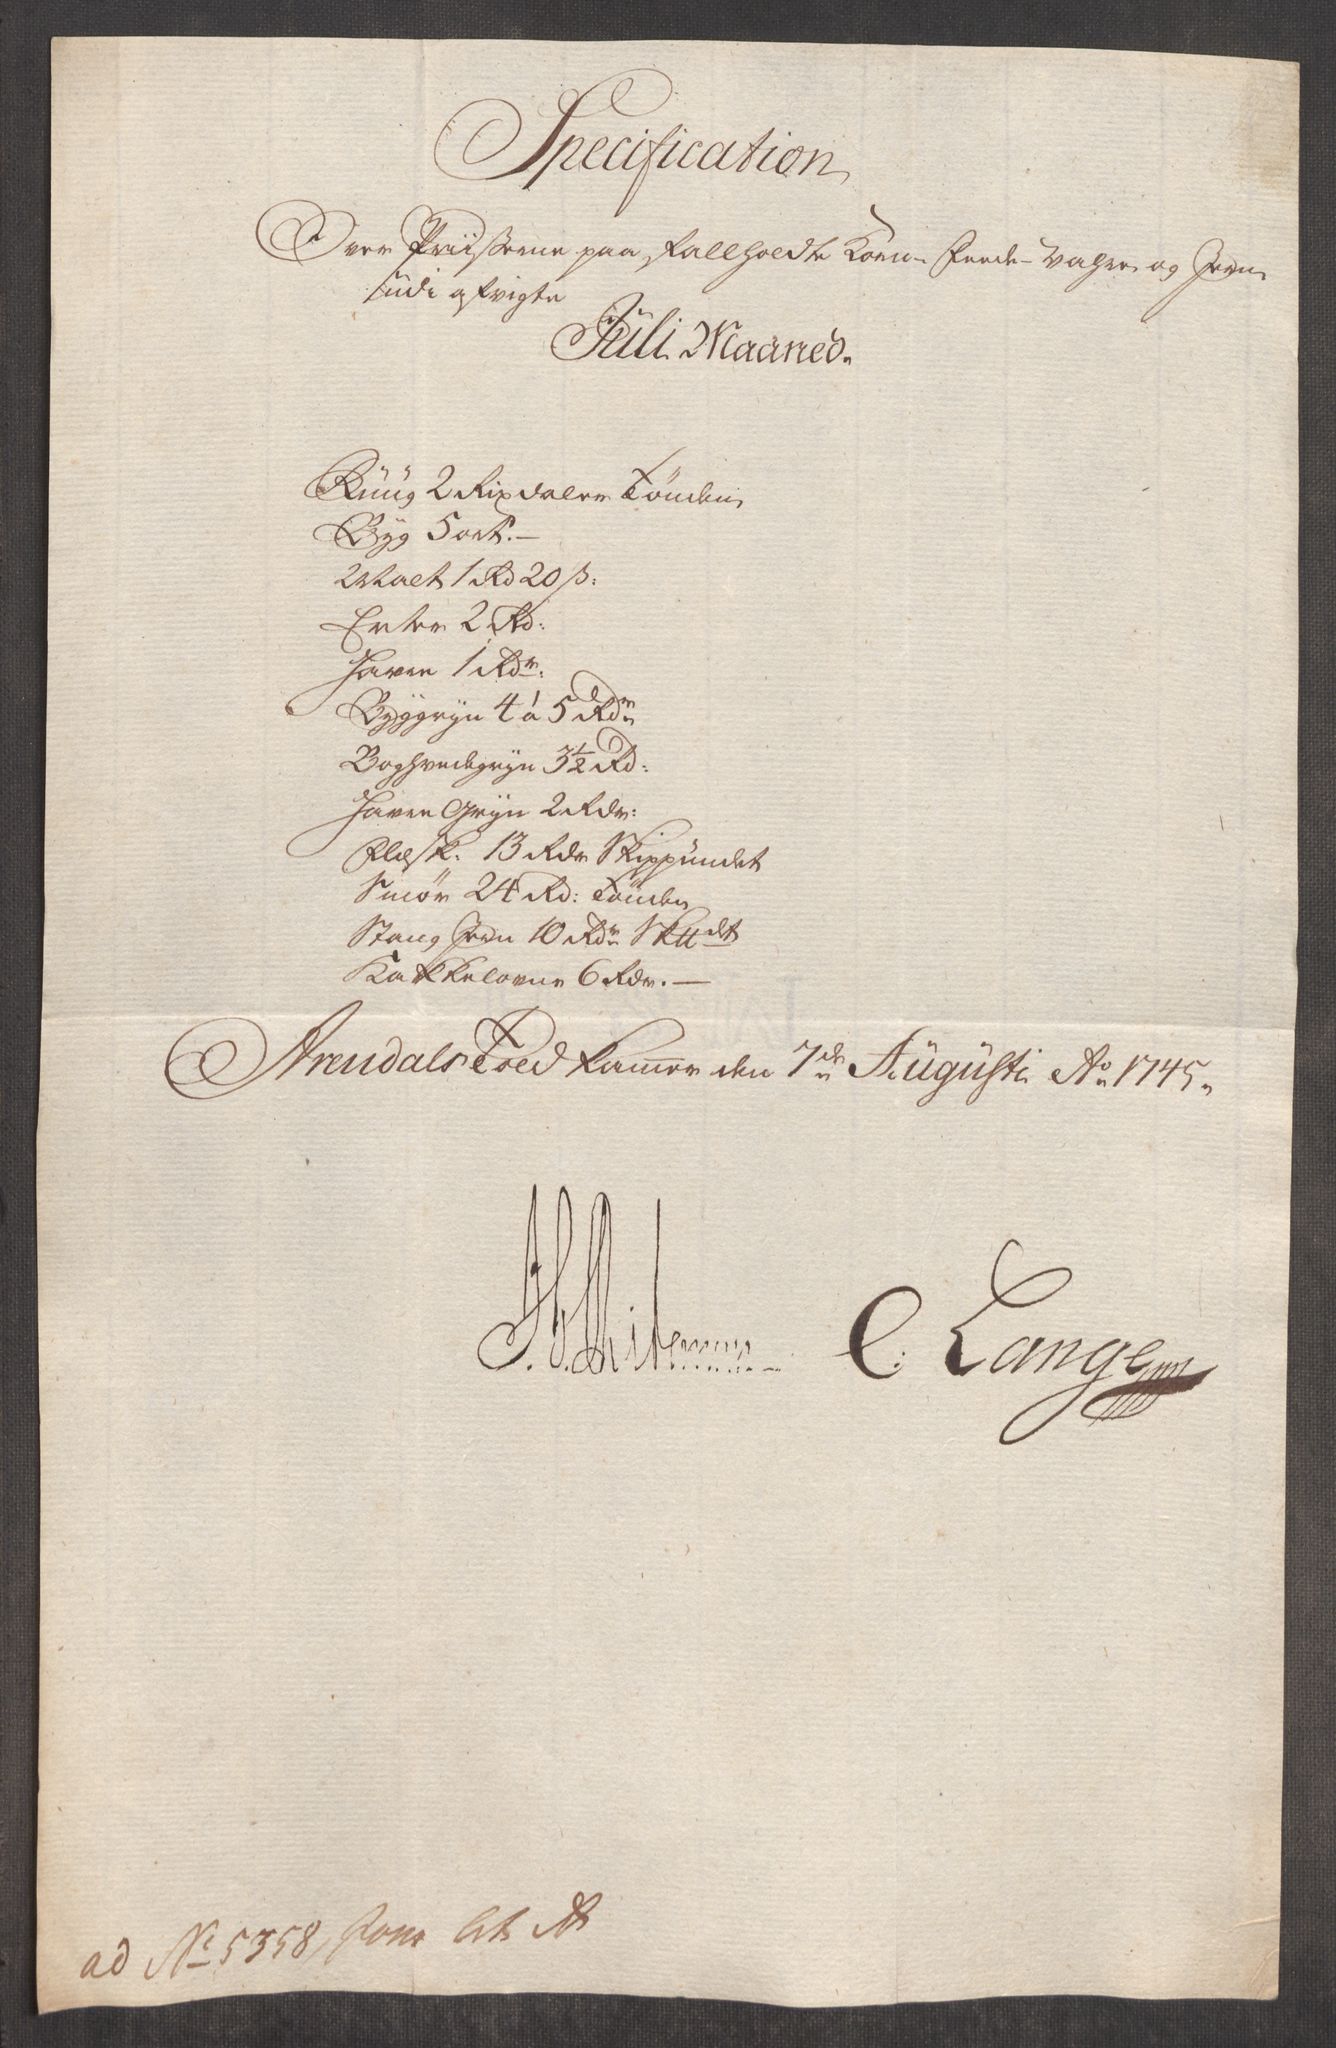 Specification
Over Priiserne paa falholdte Korn- Feede-Vahre og Jern
udi afvigte
Juli Maaned.
Rüüg 2 Rixdaler Tönden
Byg 5 ort.—
Malt 1 Rd 20 ß:
Erter 2 Rd:
Havre 1 Rdr:
Byggryn 4 á 5 Rdr
Boghvedegryn 3½ Rd:
Havre Gryn 2 Rdr:
Flæsk. 13 Rdr Skippundet
Smör 24 Rd: Tönden
Stang Jern 10 Rdr Sk℔det
Kakkelovne 6 Rdr.—
Arendals Told Kammer den 7de Augusti Ao 1745.
C: Lange
ad No 5358,